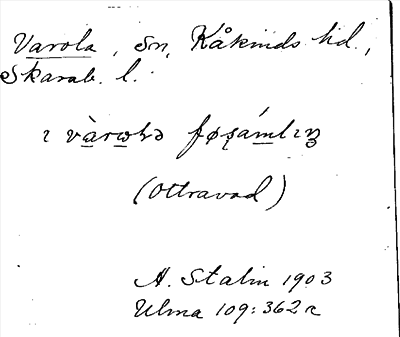 Varola, Sn, Kåkinds hd.,
Skarab. l.
ɩ
(Ottravad)
A. Stalin 1903
Ulma 109:362 r